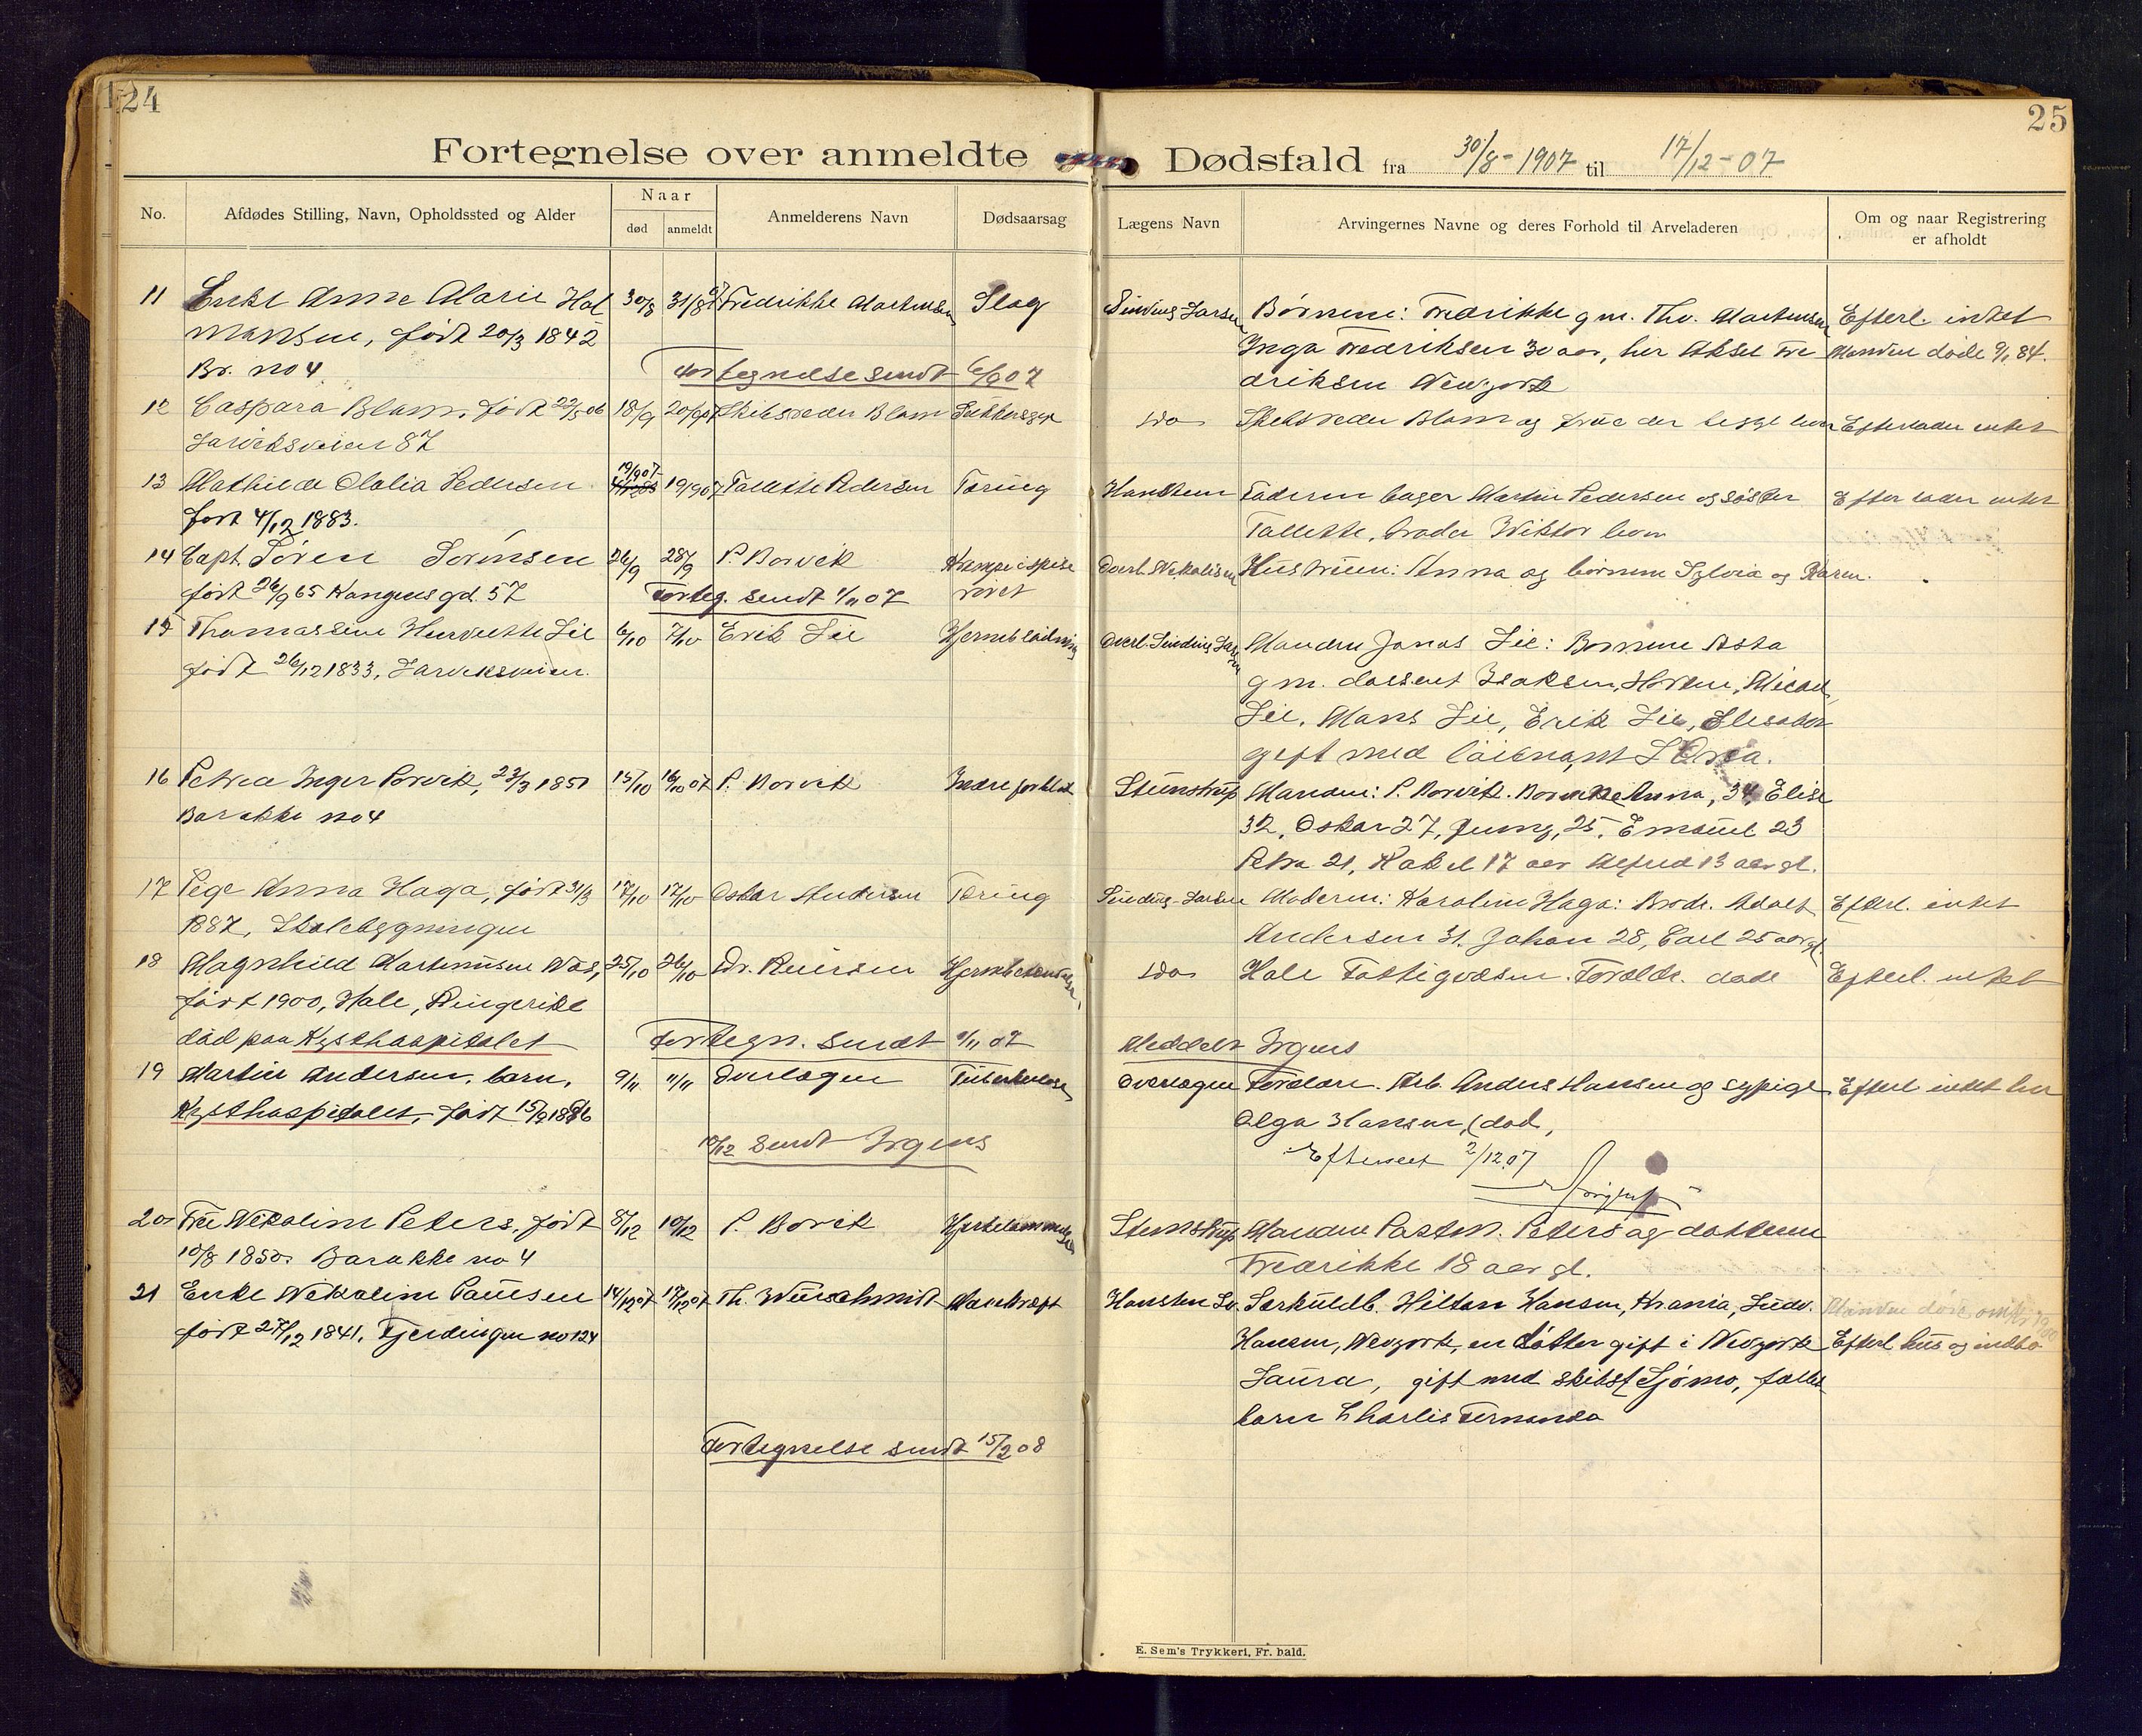 24
Fortegnelse over anmeldte
No.
Afdødes Stilling, Navn, Opholdssted og Alder
Naar
død
anmeldt
Anmelderens Navn
Dødsaarsag
11 Enke Anne Marie Hal 30/8 31/8 07 Fredrikke Martensen Slag
mansen, født 20/3 1842
Br. no 4 Fortegnelse sendt 6/9 07
12 Caspara Blom, født 22/5 06 18/9 20/9 07 Skibsreder Blom Sukkersyge
Larviksveien 87
13 Mathilde Olalia Pedersen 19/9 07 19/9 07 Tallette Pedersen Tæring
født 4/12 1883.
14 Capt. Søren Sørensen 26/9 28/9 P. Borvik Kræft i spise
født 26/9 65 Kongensgd. 57 Forteg. sendt 1/11 07 røret
15 Thomassine Henriette Lie 6/10 7/10 Erik Lie Hjerneblødning
født 26/12 1833, Larviksveien.
16 Petrea Inger Borvik, 23/3 1851 15/10 16/10 07 P. Borvik Indre forblød
Barakke no 4
17 Pige Anna Haga, født 31/3 17/10 17/10 Oskar Andersen Tæring
1887, Skolebygningen
18 Magnhild Martinusen Næs, 25/10 26/10 Dr. Reiersen
født 1900, Hole, Ringerike
død paa Kysthospitalet Fortegn. sendt 1/11 07
19 Martin Andersen, barn, 9/11 11/11 Overlægen Tuberkulose
Kysthospitalet, født 15/9 1886
10/12 sendt Irgens
20 Fru Nikoline Peters, født 8/12 10/12 P. Borvik Hjertelammelse
10/8 1850. Barakke no 4
21 Enke Nikoline Paulsen 14/12 07 17/12 07 Th. Wüschmidt Mavekræft
født 27/12 1841, Fjerdingen no 124
Fortegnelse sendt 15/2 08
25
Dødsfald fra 30/8 - 1907 til 17/12 - 07
Lægens Navn
Arvingernes Navne og deres Forhold til Arveladeren
Om og naar Registrering
er afholdt
Sinding Larsen Børnene: Fredrikke g m. Thv. Martensen Efterl. intet
Inga Fredriksen 30 aar, her Aksel Fre Manden døde 9/1 84.
driksen Newyork
Do Skibsreder Blom og frue der begge lever Efterlader intet
Hansteen Faderen bager Martin Pedersen og søster Efterlader intet
Tallette, broder Wiktor lever
Overl. Nikolisen Hustruen: Anna og børnene Sylvia og Karen.
Overl. Sinding Larsen Manden Jonas Lie: Børnene Asta
g m. dossent Isaksen, Mikael
Lie, Mons Lie, Erik Lie, Elisabet
gift med løitenant
Stenstrup Manden: P. Borvik. Børnene Anna, 34, Elise
32, Oskar 27, 25, Emanuel 23
Petra 21, Rakel 17 aar Alfred 13 aar gl.
Sinding-Larsen Moderen: Karoline Haga: Brødr. Adolf Efterl. intet
Andersen 31. Johan 28, Carl 25 aar gl.
Do Hole Fattigvæsen. Forældr. døde Efterl. intet
Meddelt Irgens
Overlægen Forældre. Arb. Anders Hansen og sypige Efterl intet her
Olga Hansen, (død,
Efterseet 2/12 07
Stenstrup Manden Postm. Peters og datteren
Fredrikke 18 aar gl.
Hansteen Sørkuldb. Hilton Hansen, Krania, Ludv. Manden døde
Hansen, Newyork, en datter gift i Newyork Efterl hus og indbo
Laura, gift med skibsf Sjømo,
barn Charlis Fernanda
E. Sem's Trykkeri, Fr. hald.